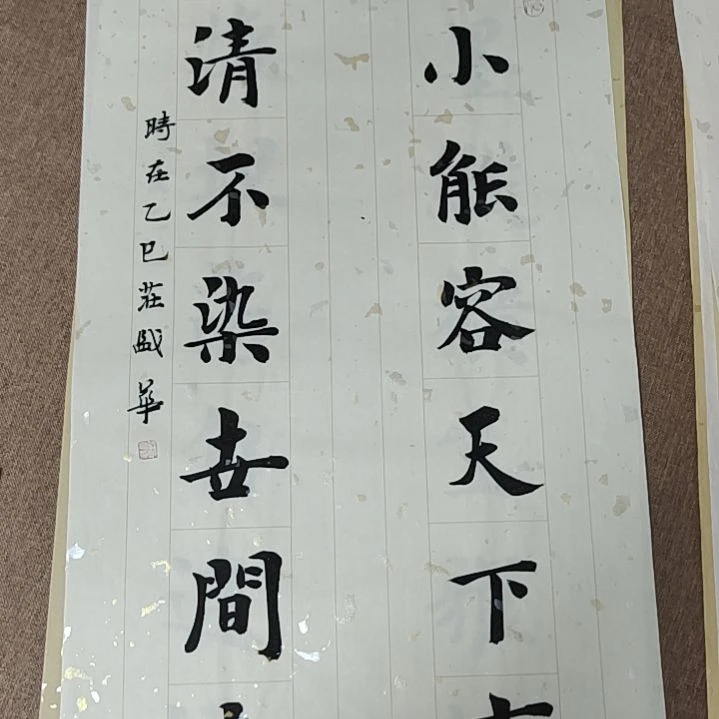 小能容天下
清不染世間
時在乙巳莊盛華